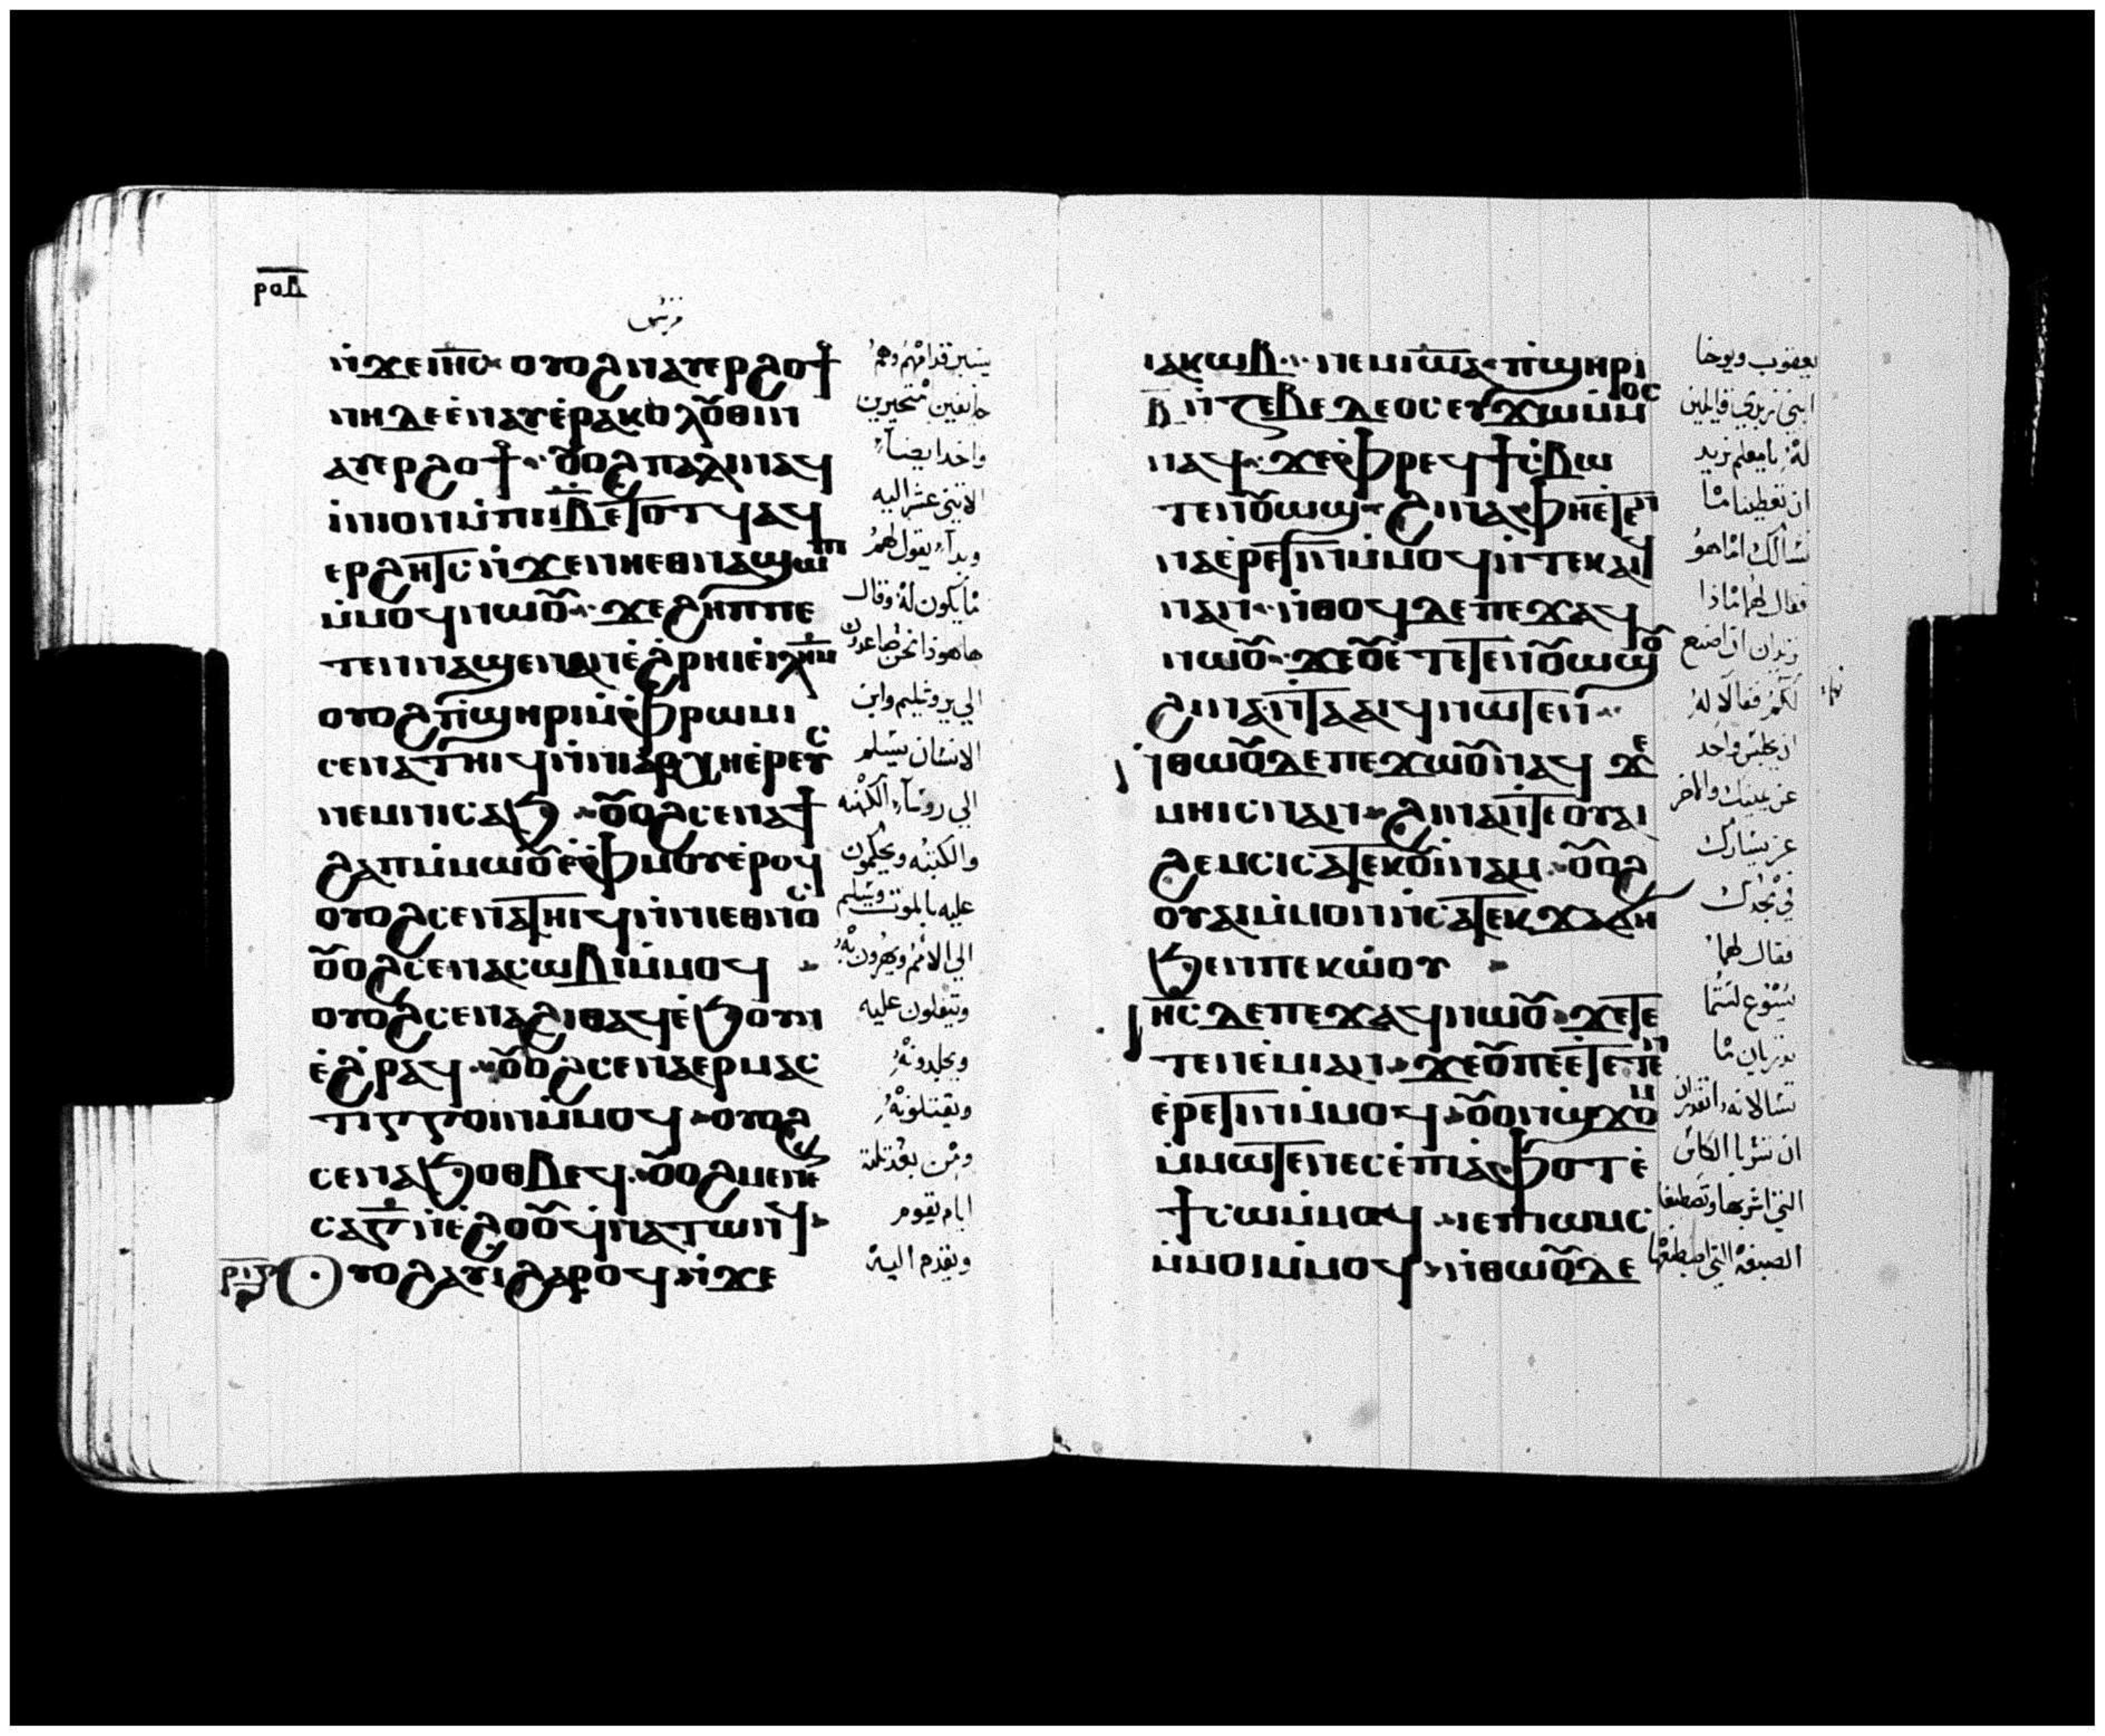 مرقس
ⲛ̇ϫⲉⲓⲏ̅ⲥ̅ ⲟⲩⲟϩ ⲛⲁⲩⲉⲣϩⲟϯ
ⲛⲏⲇⲉ ⲉ̇ⲛⲁⲩⲉ̇ⲣⲁⲕⲟⲗⲟ̅ⲑⲓⲛ
ⲁⲩⲉⲣϩⲟϯ ⲟ̅ⲟϩ ⲡⲁⲗⲓⲛ ⲁϥ
ⲁ̇ⲙⲟⲛⲓ ⲙ̇ⲡⲓⲓ̅ⲃ̅ ⲉⲧⲟⲧϥ ⲁϥ
ⲉⲣϩⲏⲧⲥ ⲛ̇ϫⲉⲛⲏⲉⲑⲛⲁϣⲱⲡⲓ
ⲙ̇ⲙⲟϥ ⲛⲱⲟ̅ ϫⲉϩⲏⲡⲡⲉ
ⲧⲉⲛⲛⲁϣⲉⲛⲁⲛ ⲉ̇ϩ̇ⲣⲏⲓ ⲉ̇ⲓⲗ̅ⲏ̅ⲙ̅
ⲟⲩⲟϩ ⲡ̇ϣⲏⲣⲓ ⲙ̇ⲫ̇ⲣⲱⲙⲓ
ⲥⲉⲛⲁⲧⲏⲓϥ ⲛ̇ⲛⲓⲁⲣⲭⲏⲉ̇ⲣⲉⲩⲥ
ⲛⲉⲙⲛⲓⲥⲁϧ ⲟ̅ⲟϩ ⲥⲉⲛⲁϯ
ϩⲁⲡ ⲙ̇ⲙⲱⲟ̅ ⲉ̇ⲫ̇ⲙⲟⲩ ⲉ̇ⲣⲟϥ
ⲟⲩⲟϩ ⲥⲉⲛⲁⲧⲏⲓϥ ⲛ̇ⲛⲓⲉⲑⲛⲟ̅ⲥ
ⲟ̅ⲟϩ ⲥⲉⲛⲁⲥⲱⲃⲓ ⲙ̇ⲙⲟϥ
ⲟⲩⲟϩ ⲥⲉⲛⲁϩⲓⲑⲁϥ ⲉ̇ϧⲟⲩⲛ
ⲉ̇ϩ̇ⲣⲁϥ ⲟ̅ⲟϩ ⲥⲉⲛⲁⲉⲣⲙⲁⲥ
ⲧⲓⲅⲅⲟⲓⲛ ⲙ̇ⲙⲟϥ ⲟⲩⲟϩ
ⲥⲉⲛⲁϧⲟⲑⲃⲉϥ ⲟ̅ⲟϩ ⲙⲉⲛⲉⲛ
ⲥⲁⲅ̅ ⲛ̇ⲉ̇ϩⲟⲟ̅ ϥ̇ⲛⲁⲧⲱⲛϥ
ⲟⲩⲟϩ ⲁⲩⲓ ϩⲁⲣⲟϥ ⲛ̇ϫⲉ
يسير قدامهم وهم
خايفين متحيرين
واخد ايضا
الاثنى عشر اليه
وبدا يقول لهم
ما يكون له وقال
ها هوذا نحن صاعدون
الي يروشليم وابن
الانسان يسلم
الي روسا الكهنه
والكتبه ويحكمون
عليه بالموت ويسلم
الي الامم ويهزون به
ويتفلون عليه
ويجلدونه
ويقتلونه
ومن بعد ثلثة
ايام يقوم
ويقدم اليه
ⲓⲁⲕⲱⲃⲟⲥ ⲛⲉⲙⲓⲱ̅ⲁ̅ ⲡ̇ϣⲏⲣⲓ
ⲃ̅ ⲛ̇ⲍⲉⲃⲉⲇⲉⲟⲥ ⲉⲩϫⲱⲙ̇ⲙⲟⲥ
ⲛⲁϥ ϫⲉⲫ̇ⲣⲉϥϯⲥ̇ⲃⲱ
ⲧⲉⲛⲟ̅ⲱϣ ϩⲓⲛⲁ ⲫⲏⲉⲧⲉⲛ
ⲛⲁⲉ̇ⲣⲉⲧⲓⲛ ⲙ̇ⲙⲟϥ ⲛ̇ⲧⲉⲕⲁⲓϥ
ⲛⲁⲛ ⲛ̇ⲑⲟϥ ⲇⲉ ⲡⲉϫⲁϥ
ⲛⲱⲟ̅ ϫⲉⲟ̅ ⲉ̇ⲧⲉⲧⲉⲛⲟ̅ⲱϣϥ
ϩⲓⲛⲁ ⲛ̇ⲧⲁⲁⲓϥ ⲛⲱⲧⲉⲛ
ⲛ̇ⲑⲱⲟ̅ ⲇⲉ ⲡⲉϫⲱⲟ̅ ⲛⲁϥ ϫⲉ
ⲙⲏⲓⲥ ⲛⲁⲛ ϩⲓⲛⲁ ⲛ̇ⲧⲉⲟⲩⲁⲓ
ϩⲉⲙⲥⲓ ⲥⲁⲧⲉⲕⲟ̅ⲓⲛⲁⲙ ⲟ̅ⲟϩ
ⲟⲩⲁⲓ ⲙ̇ⲙⲟⲛ ⲛ̇ⲥⲁⲧⲉⲕϫⲁϭⲏ
ϧⲉⲛⲡⲉⲕⲱ̇ⲟⲩ
ⲓⲏ̅ⲥ̅ ⲇⲉ ⲡⲉϫⲁϥ ⲛⲱⲟ̅ ϫⲉⲧⲉ
ⲧⲉⲛⲉ̇ⲙⲓ ⲁⲛ ϫⲉⲟ̅ ⲡⲉⲉ̇ⲧⲉⲧⲉⲛ
ⲉ̇ⲣⲉⲧⲓⲛ ⲙ̇ⲙⲟϥ ⲟ̅ⲟⲛϣϫⲟⲙ
ⲙ̇ⲙⲱⲧⲉⲛ ⲉⲥⲉ ⲡⲓⲁⲫⲟⲧ ⲉ̇
ϯⲥⲱ ⲙ̇ⲙⲟϥ ⲓⲉ ⲡⲓⲱⲙⲥ
ⲙ̇ⲙⲟⲓ ⲙ̇ⲙⲟϥ ⲛ̇ⲑⲱⲟ̅ ⲇⲉ
يعقوب ويوحنا
ابني زبدي قايلين
له يا معلم نريد
ان تعطينا ما
نسالك اما هو
فقال لهما ماذا
تريدان ان اصنع
لكم فقالا له
ان يجلس واحد
عن يمينك والاخر
عن يسارك
في مجدك
فقال لهما
يسوع لستما
تدريان ما
تسالانه اتقدران
ان تشربا الكاس
التي اشربها وتصطبغا
الصبغة التي اصطبغها